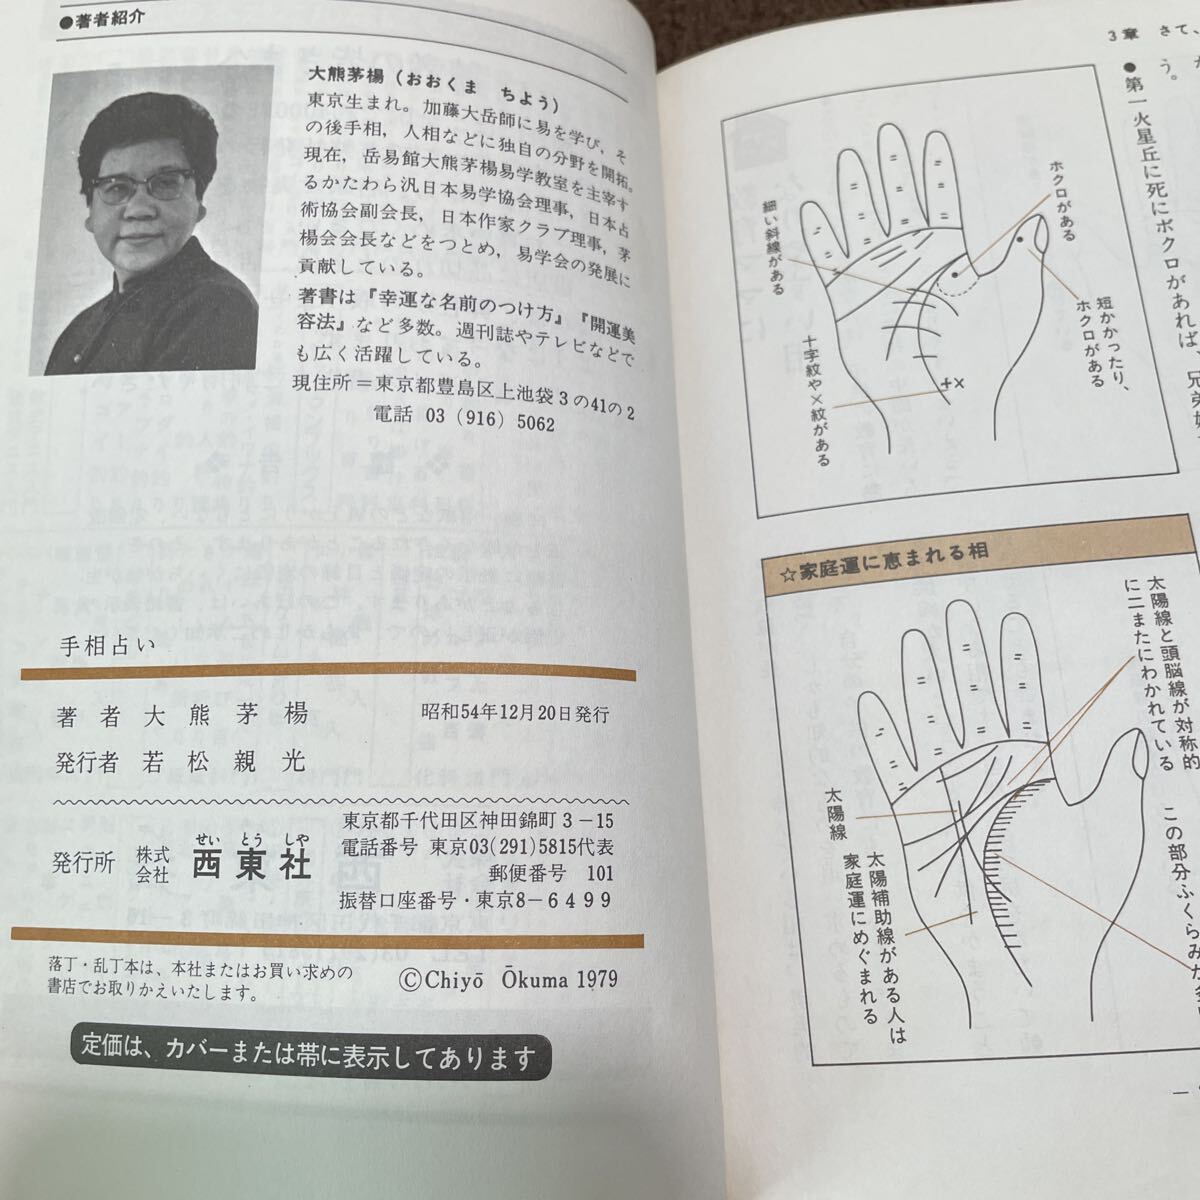 ●著者紹介
大熊茅楊（おおくま ちよう）
東京生まれ。加藤大岳師に易を学び，そ
の後手相，人相などに独自の分野を開拓。
現在，岳易館大熊茅楊易学教室を主宰す
るかたわら汎日本易学協会理事，日本占
術協会副会長，日本作家クラブ理事，茅
楊会会長などをつとめ，易学会の発展に
貢献している。
著書は『幸運な名前のつけ方』『開運美
容法』など多数。週刊誌やテレビなどで
も広く活躍している。
現住所＝東京都豊島区上池袋3の41の2
電話 03（916）5062
手相占い
著者 大熊茅楊
昭和54年12月20日発行
発行者 若松親光
発行所 株式会社 西東社
せい とう しや
東京都千代田区神田錦町3－15
電話番号 東京03(291)5815代表
郵便番号 101
振替口座番号・東京8－6499
落丁・乱丁本は、本社またはお買い求めの
書店でお取りかえいたします。
©Chiyō Ōkuma 1979
定価は、カバーまたは帯に表示してあります
3章 さて、
う。
●第一火星丘に死にボクロがあれば、兄弟
ホクロがある
短かかったり、
ホクロがある
細い斜線がある
十字紋や×紋がある
☆家庭運に恵まれる相
太陽線と頭脳線が対称的
に二またにわかれている
この部分ふくらみが
太陽線
太陽補助線がある人は
家庭運にめぐまれる